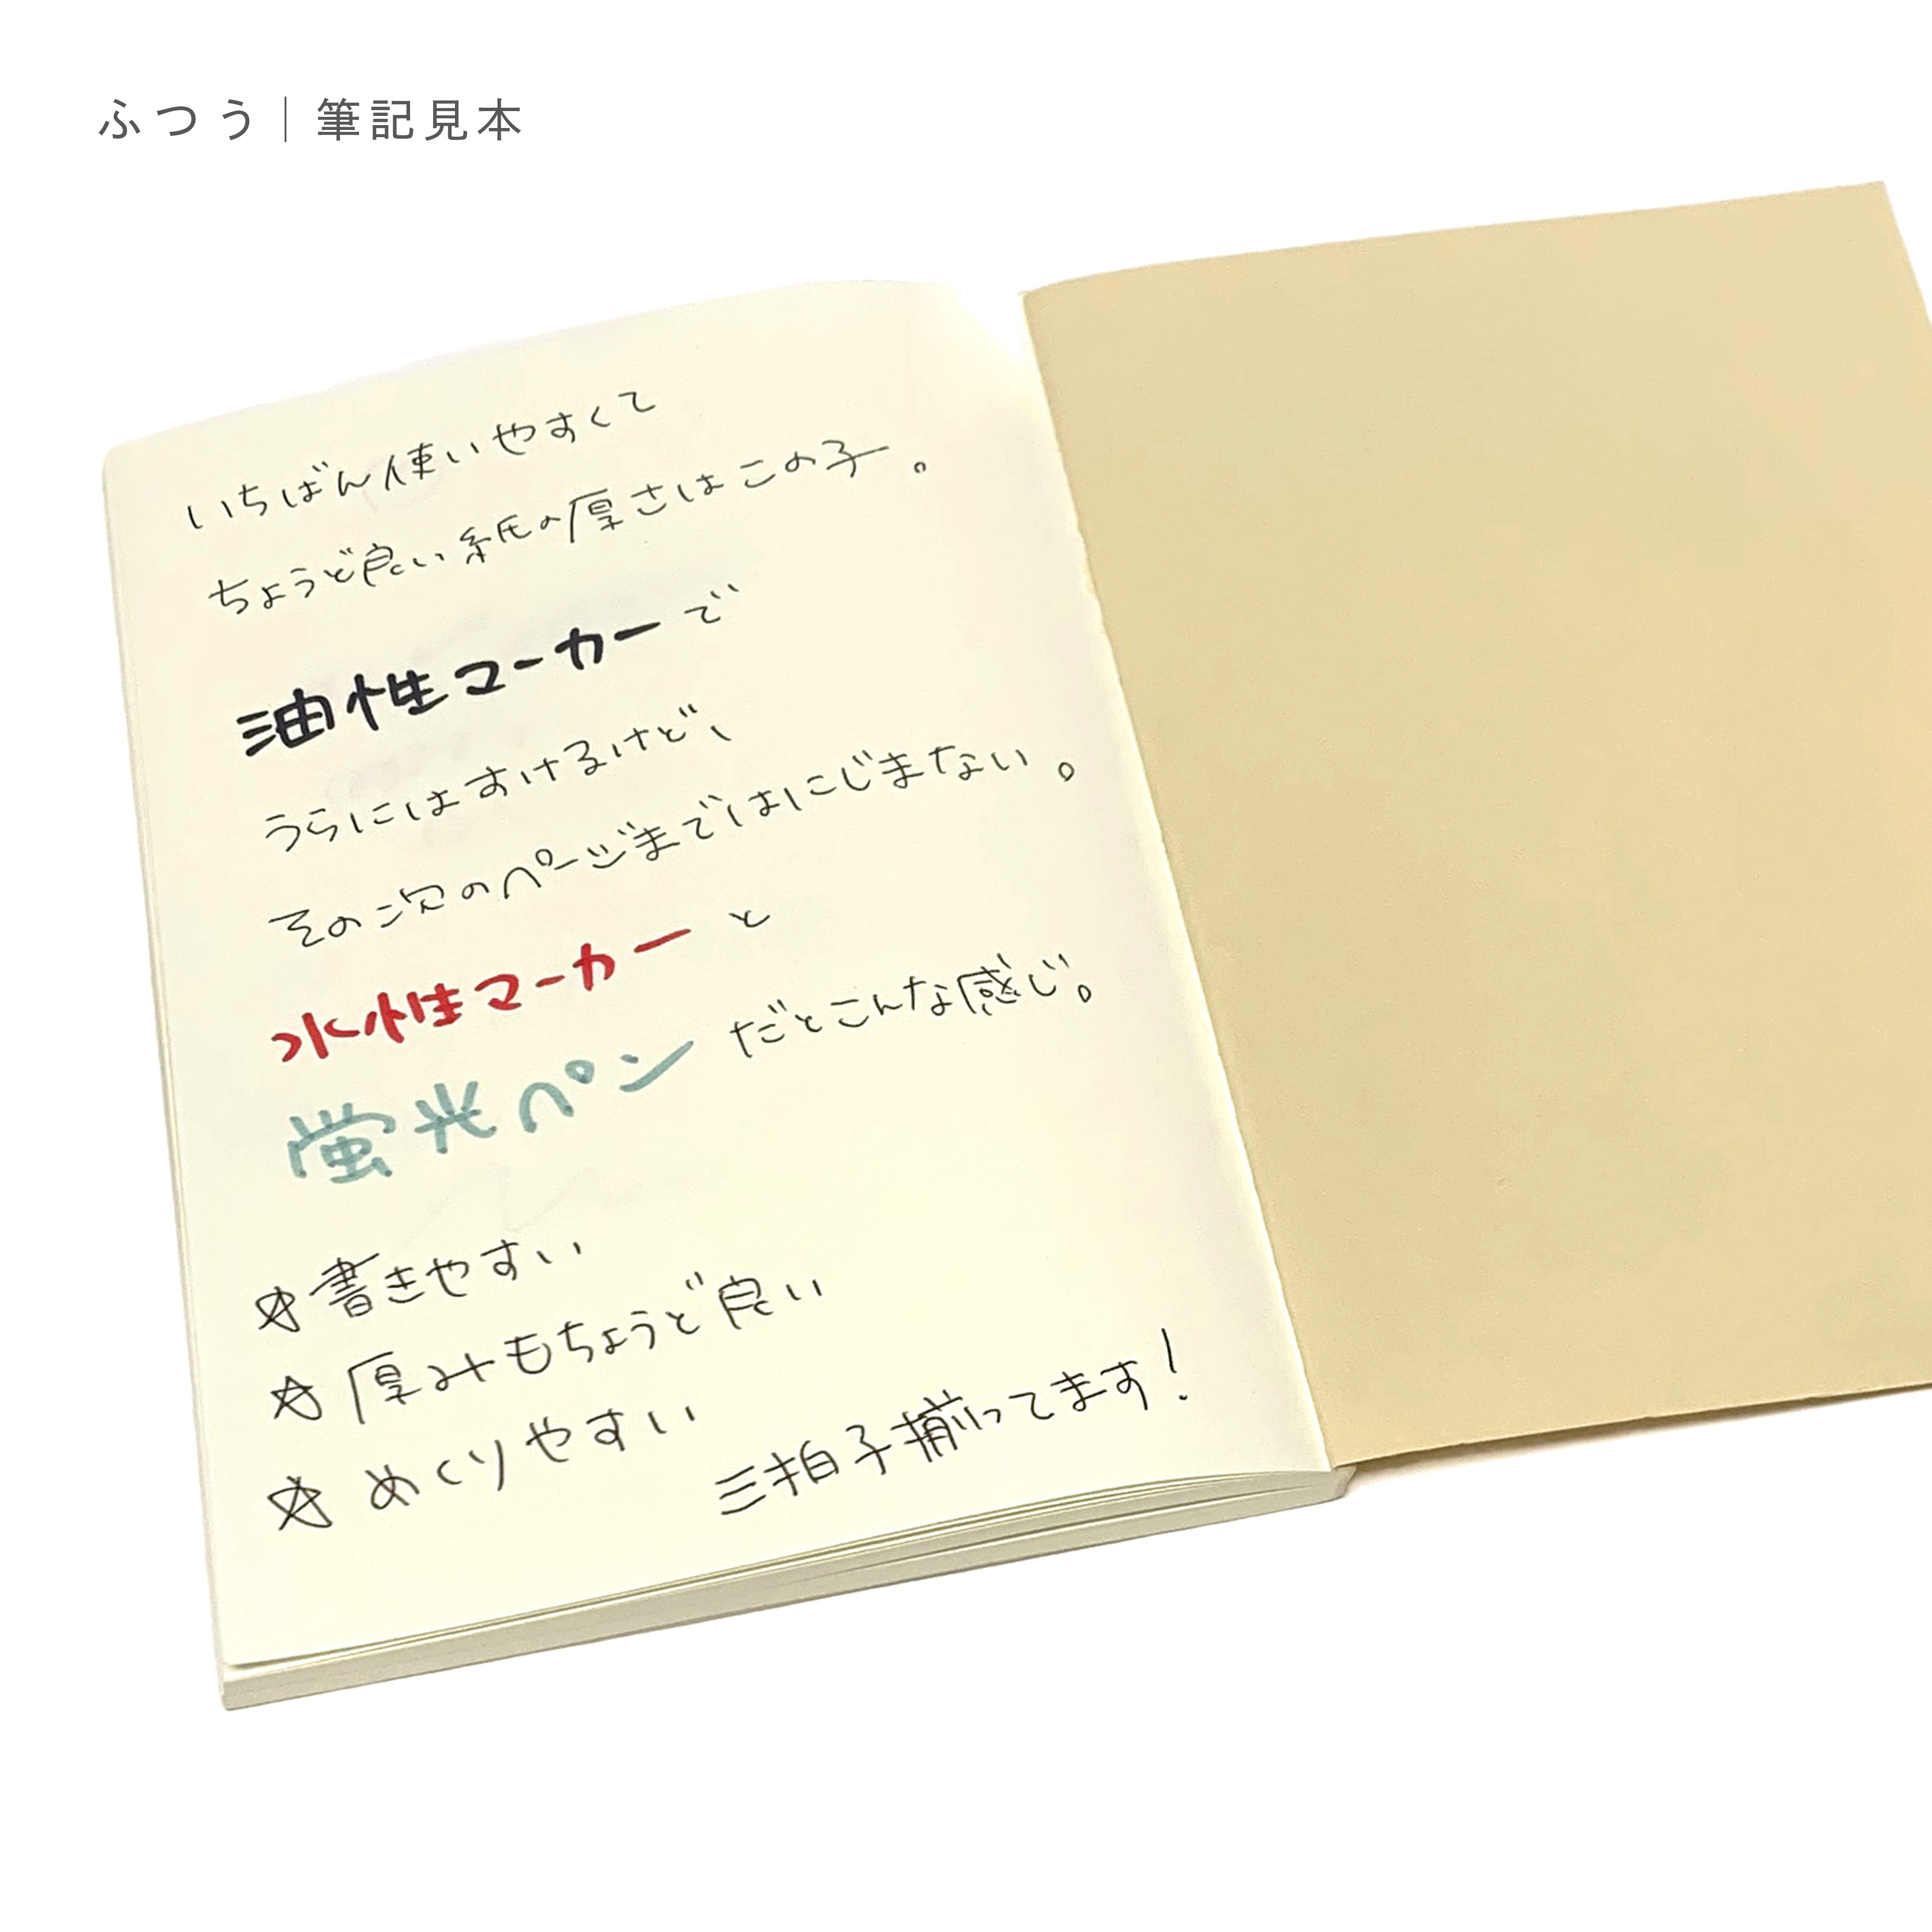 ふつう｜筆記見本
いちばん使いやすくて
ちょうど良い紙の厚さはこの子。
油性マーカーで
うらにはすけるけど、
その次のページまではにじまない。
水性マーカーと
蛍光ペンだとこんな感じ。
☆書きやすい
☆厚みもちょうど良い
☆めくりやすい
三拍子揃ってます！